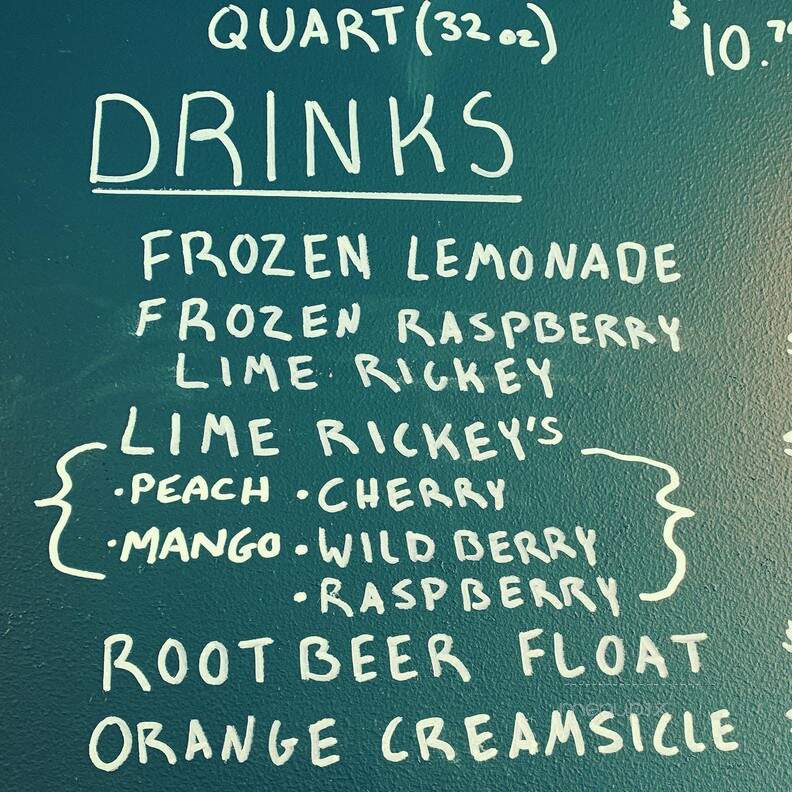 QUART (32 oz) $10.7
DRINKS
FROZEN LEMONADE
FROZEN RASPBERRY
LIME RICKEY
LIME RICKEY'S
·PEACH ·CHERRY
·MANGO ·WILD BERRY
·RASPBERRY
ROOTBEER FLOAT
ORANGE CREAMSICLE